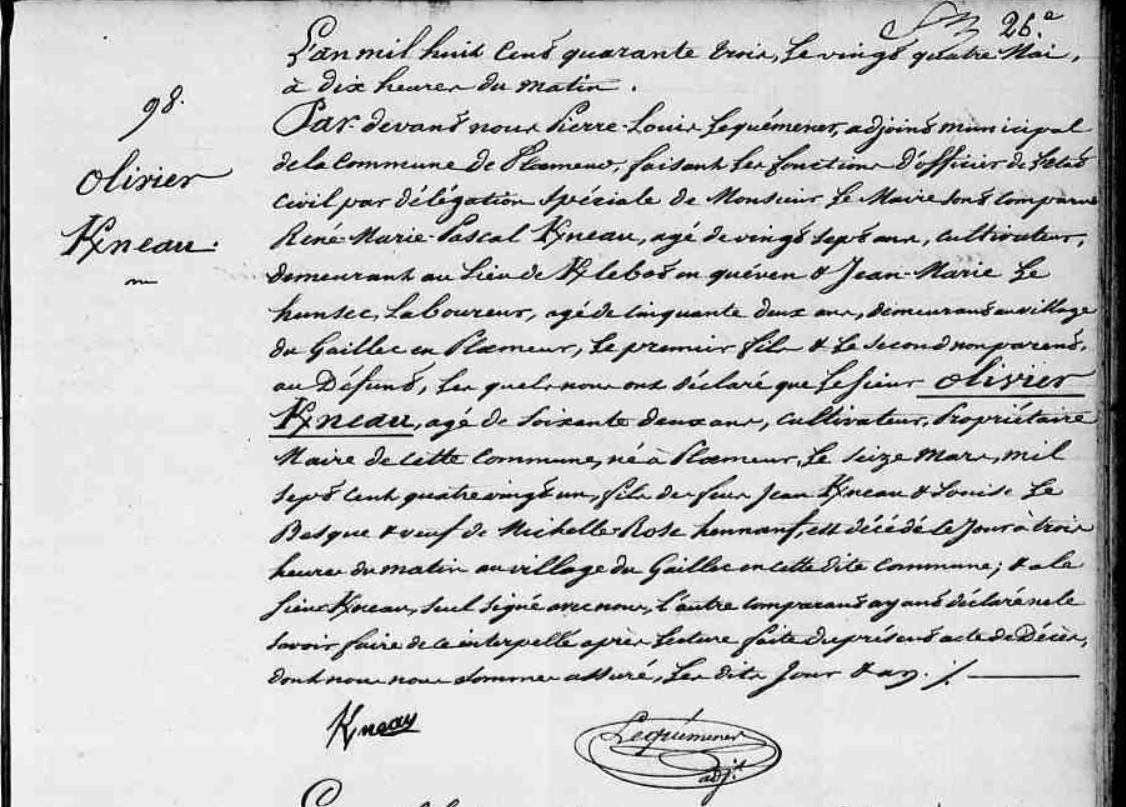 26.e
L'an mil huit cent quarante trois, le vingt quatre Mai,
à dix heures du matin.
98.
Olivier
Kneau.
Par-devant nous Pierre-Louis Lequémener, adjoint municipal
de la Commune de Ploemeur, faisant les fonctions d'officier de l'état
civil par délégation spéciale de Monsieur le Maire sont comparus
René-Marie-Pascal Kneau, agé de vingt sept ans, cultivateur,
demeurant au lieu de K lebot en quéven & Jean-Marie Le
hunsec, Laboureur, agé de cinquante deux ans, demeurant au village
du Gaillec en Ploemeur, le premier fils & le second non parent,
au Défunt, les quels nous ont déclaré que le sieur Olivier
Kneau, agé de soixante deux ans, cultivateur, Propriétaire
Maire de cette Commune, né à Ploemeur, le seize Mars, mil
sept cent quatre vingt un, fils de feus Jean Kneau & Louise Le
Besque & veuf de Michelle-Rose hennanf, est décédé ce Jour à trois
heures du matin au village du Gaillec en cette dite Commune; & a le
sieur Kneau, seul signé avec nous, l'autre comparant ayant déclaré ne le
savoir faire de ce interpellé après lecture faite du présent acte de Décès,
dont nous nous sommes assuré, les dits Jour & an. ./.
Kneau
Lequémener
adj.t